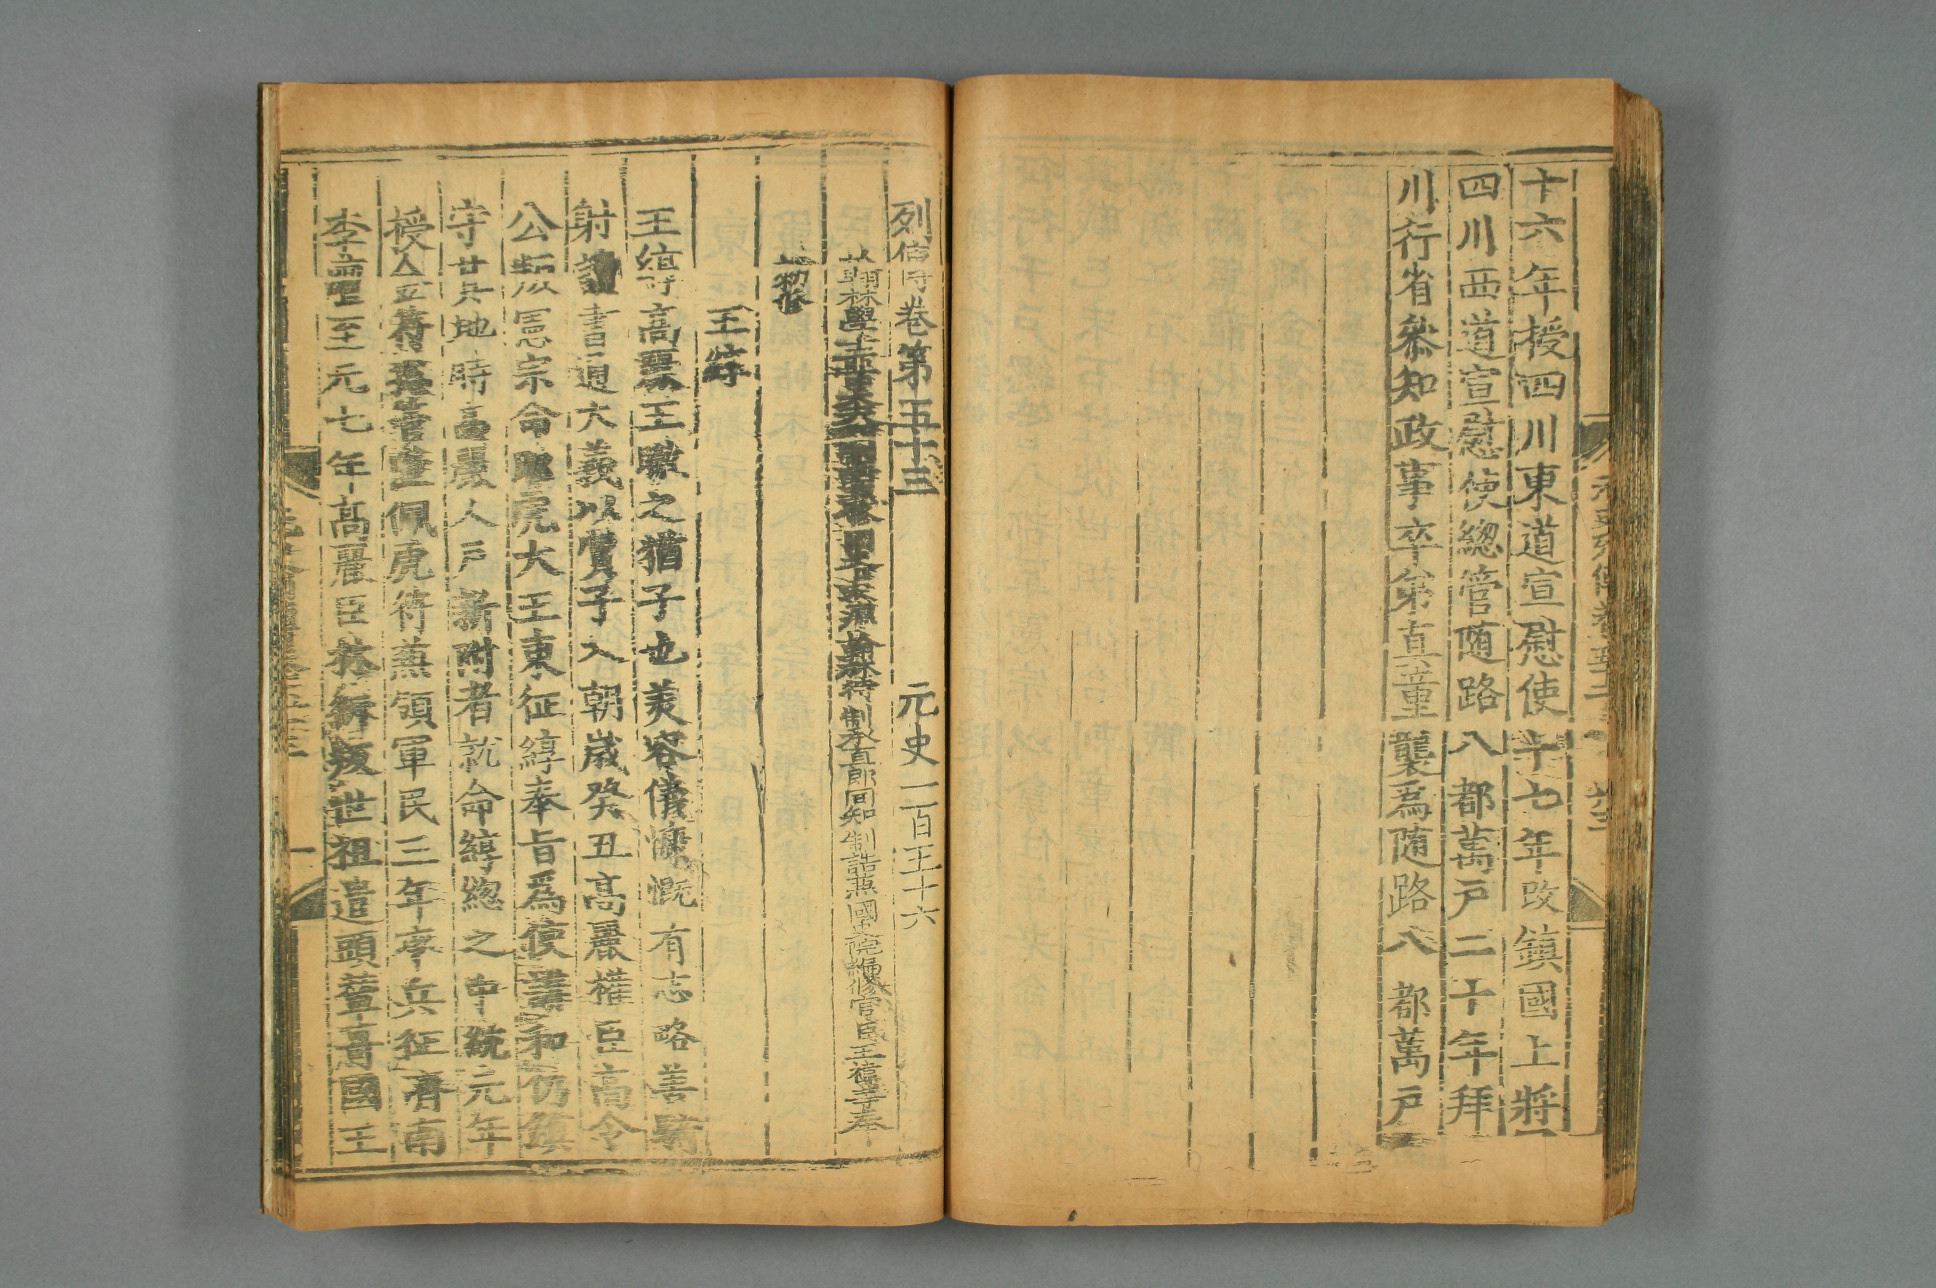 十六年授四川東道宣慰使十七年改鎮國上將
四川西道宣慰使總管隨路八都萬戶二十年拜
川行省叅知政事卒弟真童襲爲隨路八都萬戶
列傳卷第五十三 元史一百六十六
翰林學士 制承直郎同知制誥兼國史院編修官臣王禕等奉
勑修
王綧
王綧高麗王㬚之猶子也美容儀慷慨有志略善騎
射讀書通大義以質子入朝歲癸丑高麗權臣高令
公叛憲宗命耶虎大王東征綧奉旨爲使講和仍鎮
守其地時高麗人戶新附者就命綧總之中統元年
授金符爲管佩虎符兼領軍民三年率兵征濟南
李璮至元七年高麗臣林衍叛世祖遣頭輦哥國王
一